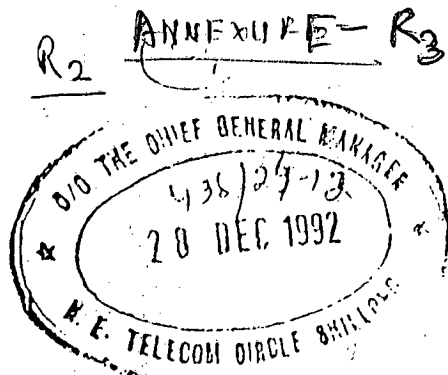 R2 ANNEXURE - R3
O/O THE CHIEF GENERAL MANAGER
28 DEC 1992
N. E. TELECOM CIRCLE SHILLONG